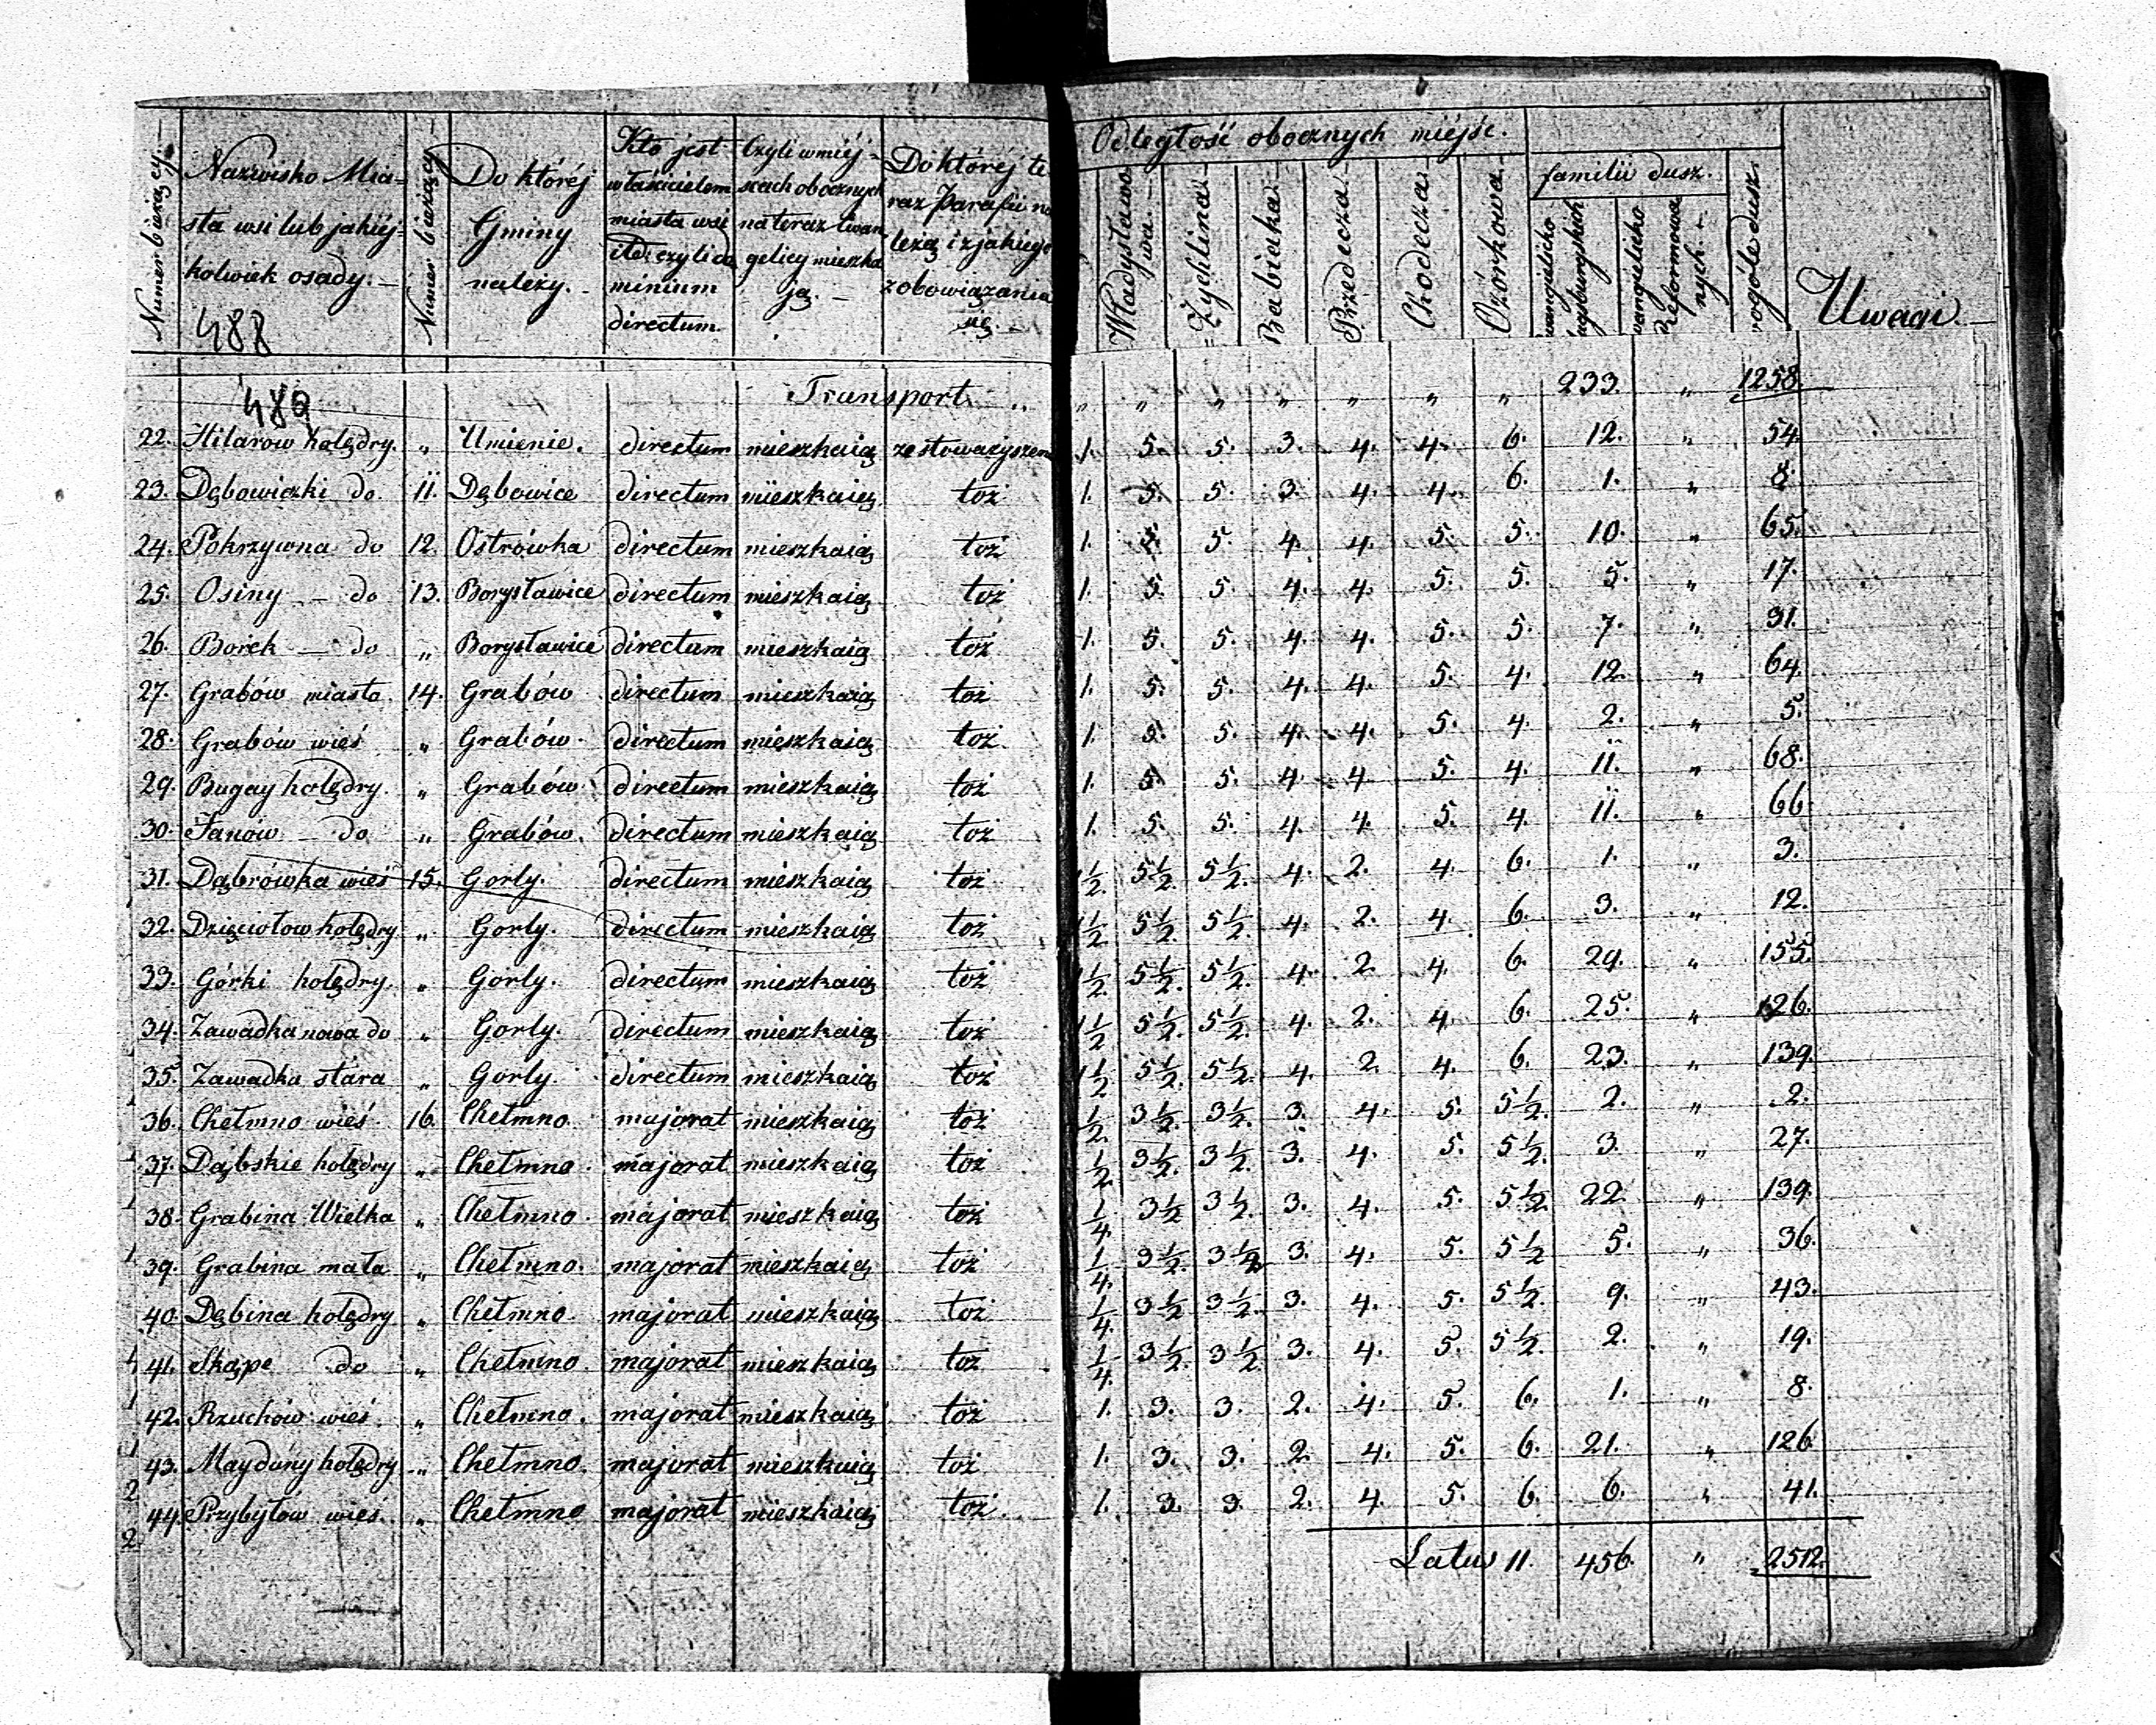 Numer bieżący.
Nazwisko Mia-
sta wsi lub jakiéj-
kolwiek osady. —
488
Numer bieżący
Do któréj
Gminy
należy. —
Kto jest
właścicielem
miasta wsi
itd: czyli do
minium
directum.
Czyli w miéj-
scach obocznych
na teraz Ewan
gelicy mieszka
ją. —
Do któréj te
raz Parafii na
leżą i z jakiego
zobowiązania
się. —
Odległość obocznych miéjsc.
Władysławo
wa. —
Żychlina —
Babiaka —
Przedecza. —
Chodecza.
Ozórkowa. —
familii dusz.
wangielicko
ugsburgskich
wangielicko
Reformowa
nych. —
ogóle dusz.
Uwagi. —
489 Transport „ „ „ „ „ „ „ „ 233. „ 1258.
22. Hilarow holędry. „ Umienie. directum mieszkaią ze stowarzyszen 1. 5. 5. 3. 4. 4. 6. 12. „ 54.
23. Dębowiczki do 11. Dębowice directum mieszkaią toż 1. 5. 5. 3. 4. 4. 6. 1. „ 8.
24. Pokrzywna do 12. Ostrówka directum mieszkaią toż 1. 5. 5. 4. 4. 5. 5. 10. „ 65.
25. Osiny — do 13. Borysławice directum mieszkaią toż 1. 5. 5. 4. 4. 5. 5. 5. „ 17.
26. Borek — do „ Borysławice directum mieszkaią toż 1. 5. 5. 4. 4. 5. 5. 7. „ 31.
27. Grabów miasto. 14. Grabów directum mieszkaią toż 1. 5. 5. 4. 4. 5. 4. 12. „ 64.
28. Grabów wieś „ Grabów. directum mieszkaią toż. 1. 5. 5. 4. 4. 5. 4. 2. „ 5.
29. Bugay holędry. „ Grabów. directum mieszkaią toż 1. 5. 5. 4. 4 5. 4. 11. „ 68.
30. Janów — do „ Grabów. directum mieszkaią toż 1. 5. 5. 4. 4. 5. 4. 11. „ 66.
31. Dąbrówka wieś 15. Gorly. directum mieszkaią toż 1½. 5½. 5½. 4. 2. 4. 6. 1. „ 3.
32. Dzięciołow holędry „ Gorly. directum mieszkaią toż 1½. 5½. 5½. 4. 2. 4. 6. 3. „ 12.
33. Górki holędry. „ Gorly. directum mieszkaią toż 1½. 5½. 5½. 4. 2. 4. 6. 29. „ 155.
34. Zawadka nowa do „ Gorly. directum mieszkaią toż 1½ 5½. 5½. 4. 2. 4. 6. 25. „ 126.
35. Zawadka stara „ Gorly. directum mieszkaią toż 1½ 5½. 5½. 4. 2. 4. 6. 23. „ 139.
36. Chełmno wieś. 16. Chełmno. majorat mieszkaią toż ½. 3½. 3½. 3. 4. 5. 5½. 2. „ 2.
37. Dąbskie holędry „ Chełmno. majorat mieszkaią toż ½. 3½. 3½. 3. 4. 5. 5½. 3. „ 27.
38. Grabina Wielka „ Chełmno. majorat mieszkaią toż ¼. 3½ 3½. 3. 4. 5. 5½. 22. „ 139.
39. Grabina mała „ Chełmno. majorat mieszkaią toż ¼. 3½. 3½ 3. 4. 5. 5½ 5. „ 36.
40. Dębina holędry „ Chełmno. majorat mieszkaią toż ¼. 3½ 3½. 3. 4. 5. 5½. 9. „ 43.
41. Skąpe do „ Chełmno. majorat mieszkaią toż ¼. 3½. 3½. 3. 4. 5. 5½. 2. „ 19.
42. Rzuchów wieś. „ Chełmno. majorat mieszkaią toż 1. 3. 3. 2. 4. 5. 6. 1. „ 8.
43. Maydány holędry „ Chełmno. majorat mieszkaią toż 1. 3. 3. 2. 4. 5. 6. 21. „ 126
44. Przybyłow wieś. „ Chełmno majorat mieszkaią toż. 1. 3. 3. 2. 4. 5. 6. 6. „ 41.
Latus 11. 456. „ 2512.